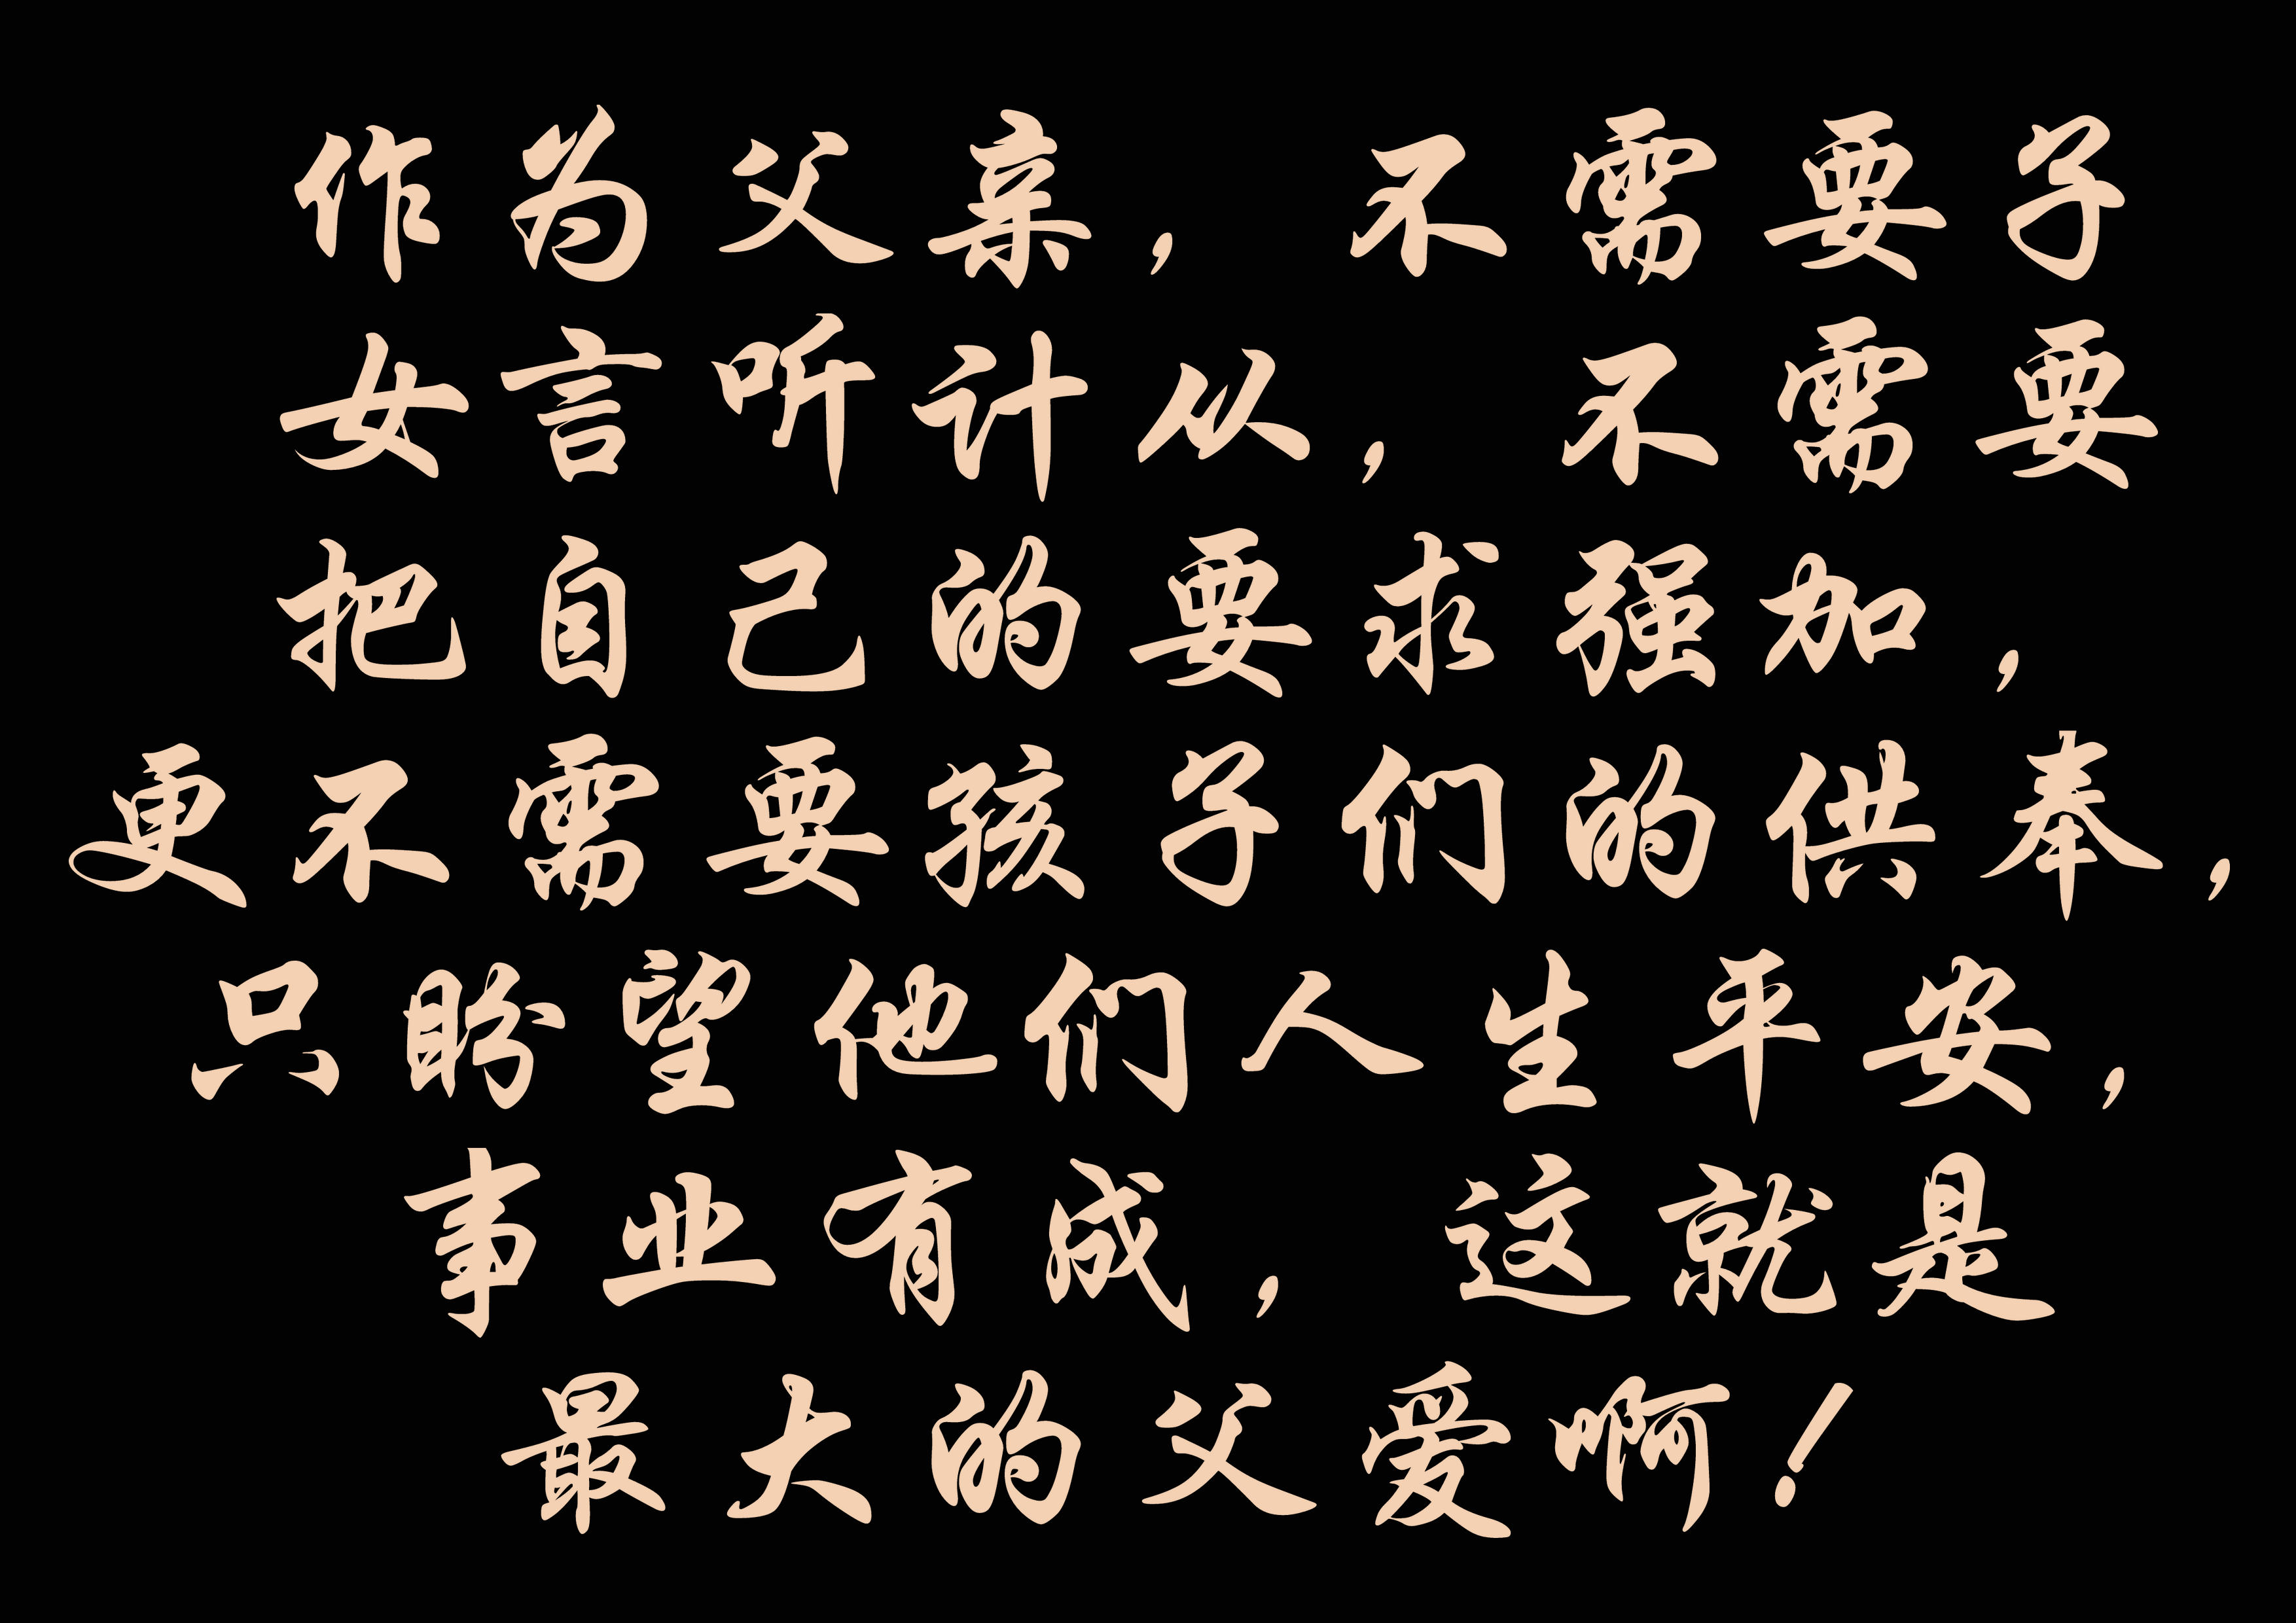 作为父亲，不需要子
女言听计从，不需要
把自己的要求强加，
更不需要孩子们的供奉，
只盼望他们人生平安，
事业有成，这就是
最大的父爱啊！